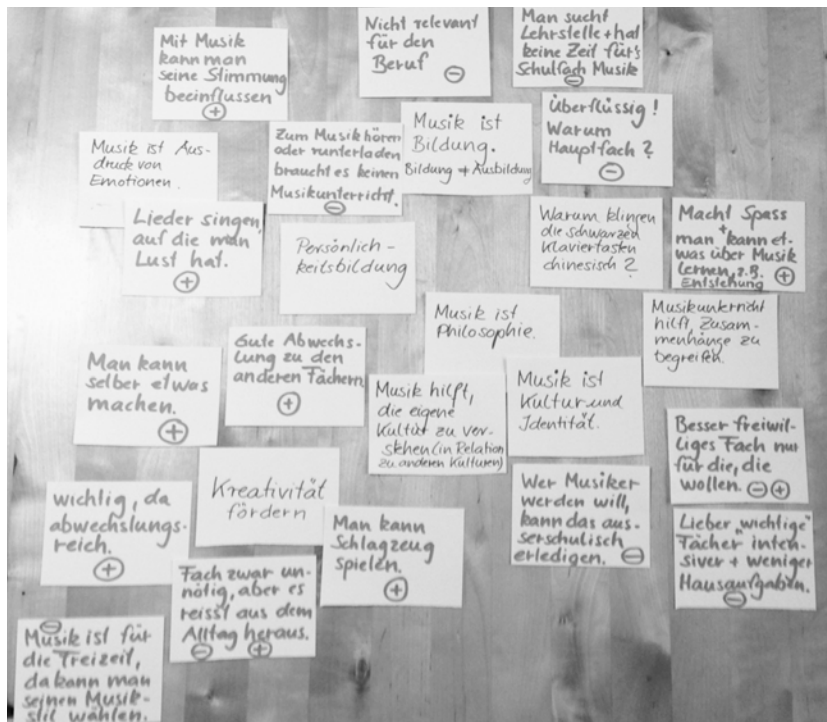 Mit Musik
kann man
seine Stimmung
beeinflussen
+
Nicht relevant
für den
Beruf
-
Man sucht
Lehrstelle + hat
keine Zeit für's
Schulfach Musik
-
Musik ist Aus-
druck von
Emotionen.
Zum Musik hören
oder runterladen
braucht es keinen
Musikunterricht.
-
Musik ist
Bildung.
Bildung + Ausbildung
Überflüssig!
Warum
Hauptfach?
-
Lieder singen,
auf die man
Lust hat.
+
Persönlich-
keitsbildung
Warum klingen
die schwarzen
Klaviertasten
chinesisch?
Macht Spass
+
man kann et-
was über Musik
lernen, z.B.
Entstehung
+
Musik ist
Philosophie.
Musikunterricht
hilft, Zusam-
menhänge zu
begreifen.
Man kann
selber etwas
machen.
+
Gute Abwechs-
lung zu den
anderen Fächern
+
Musik hilft,
die eigene
Kultur zu ver-
stehen (in Relation
zu anderen Kulturen)
Musik ist
Kultur und
Identität.
Besser freiwil-
liges Fach nur
für die, die
wollen. - +
wichtig, da
abwechslungs-
reich.
+
Kreativität
fördern
Man kann
Schlagzeug
spielen.
+
Wer Musiker
werden will,
kann das aus-
serschulisch
erledigen. -
Lieber "wichtige"
Fächer inten-
siver + weniger
Hausaufgaben.
-
Fach zwar un-
nötig, aber es
reisst aus dem
Alltag heraus.
- +
-
Musik ist für
die Freizeit,
da kann man
seinen Musik-
stil wählen.